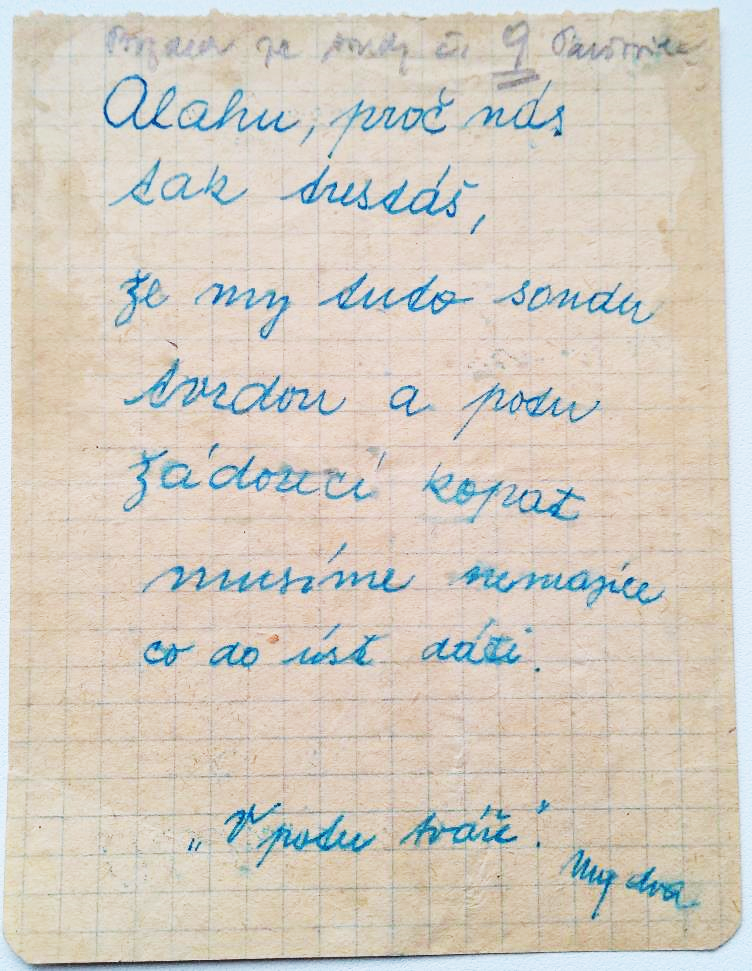 Pozdrav ze sondy č. 9
Alahu, proč nás
tak trestáš,
že my tuto sondu
tvrdou a potu
žádoucí kopat
musíme nemajíce
co do úst dáti.
„V potu tváře".
My dva